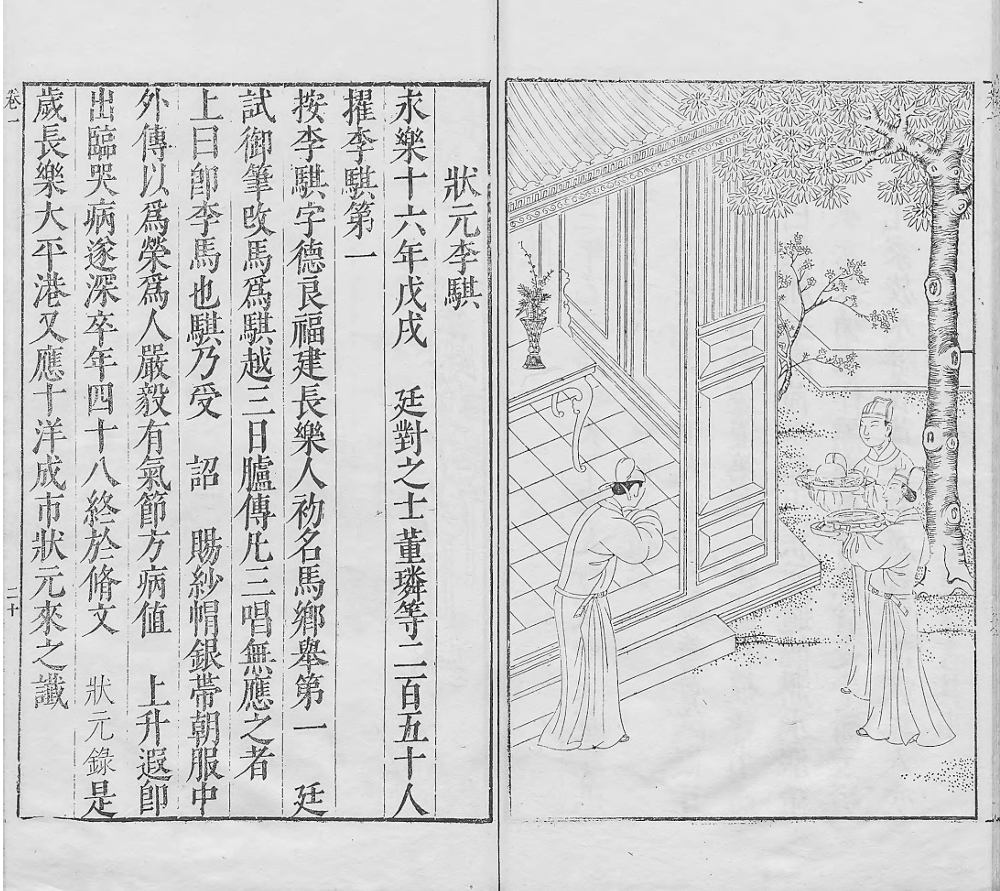 狀元李騏
永樂十六年戊戌　廷對之士董璘等二百五十人
擢李騏第一
按李騏字德良福建長樂人初名馬鄉舉第一　廷
試御筆改馬爲騏越三日臚傳凡三唱無應之者
上曰卽李馬也騏乃受　詔　賜紗帽銀帶朝服中
外傳以爲榮爲人嚴毅有氣節方病值　上升遐卽
出臨哭病遂深卒年四十八終於脩文　狀元錄是
歲長樂大平港又應十洋成市狀元來之讖
卷一
二十